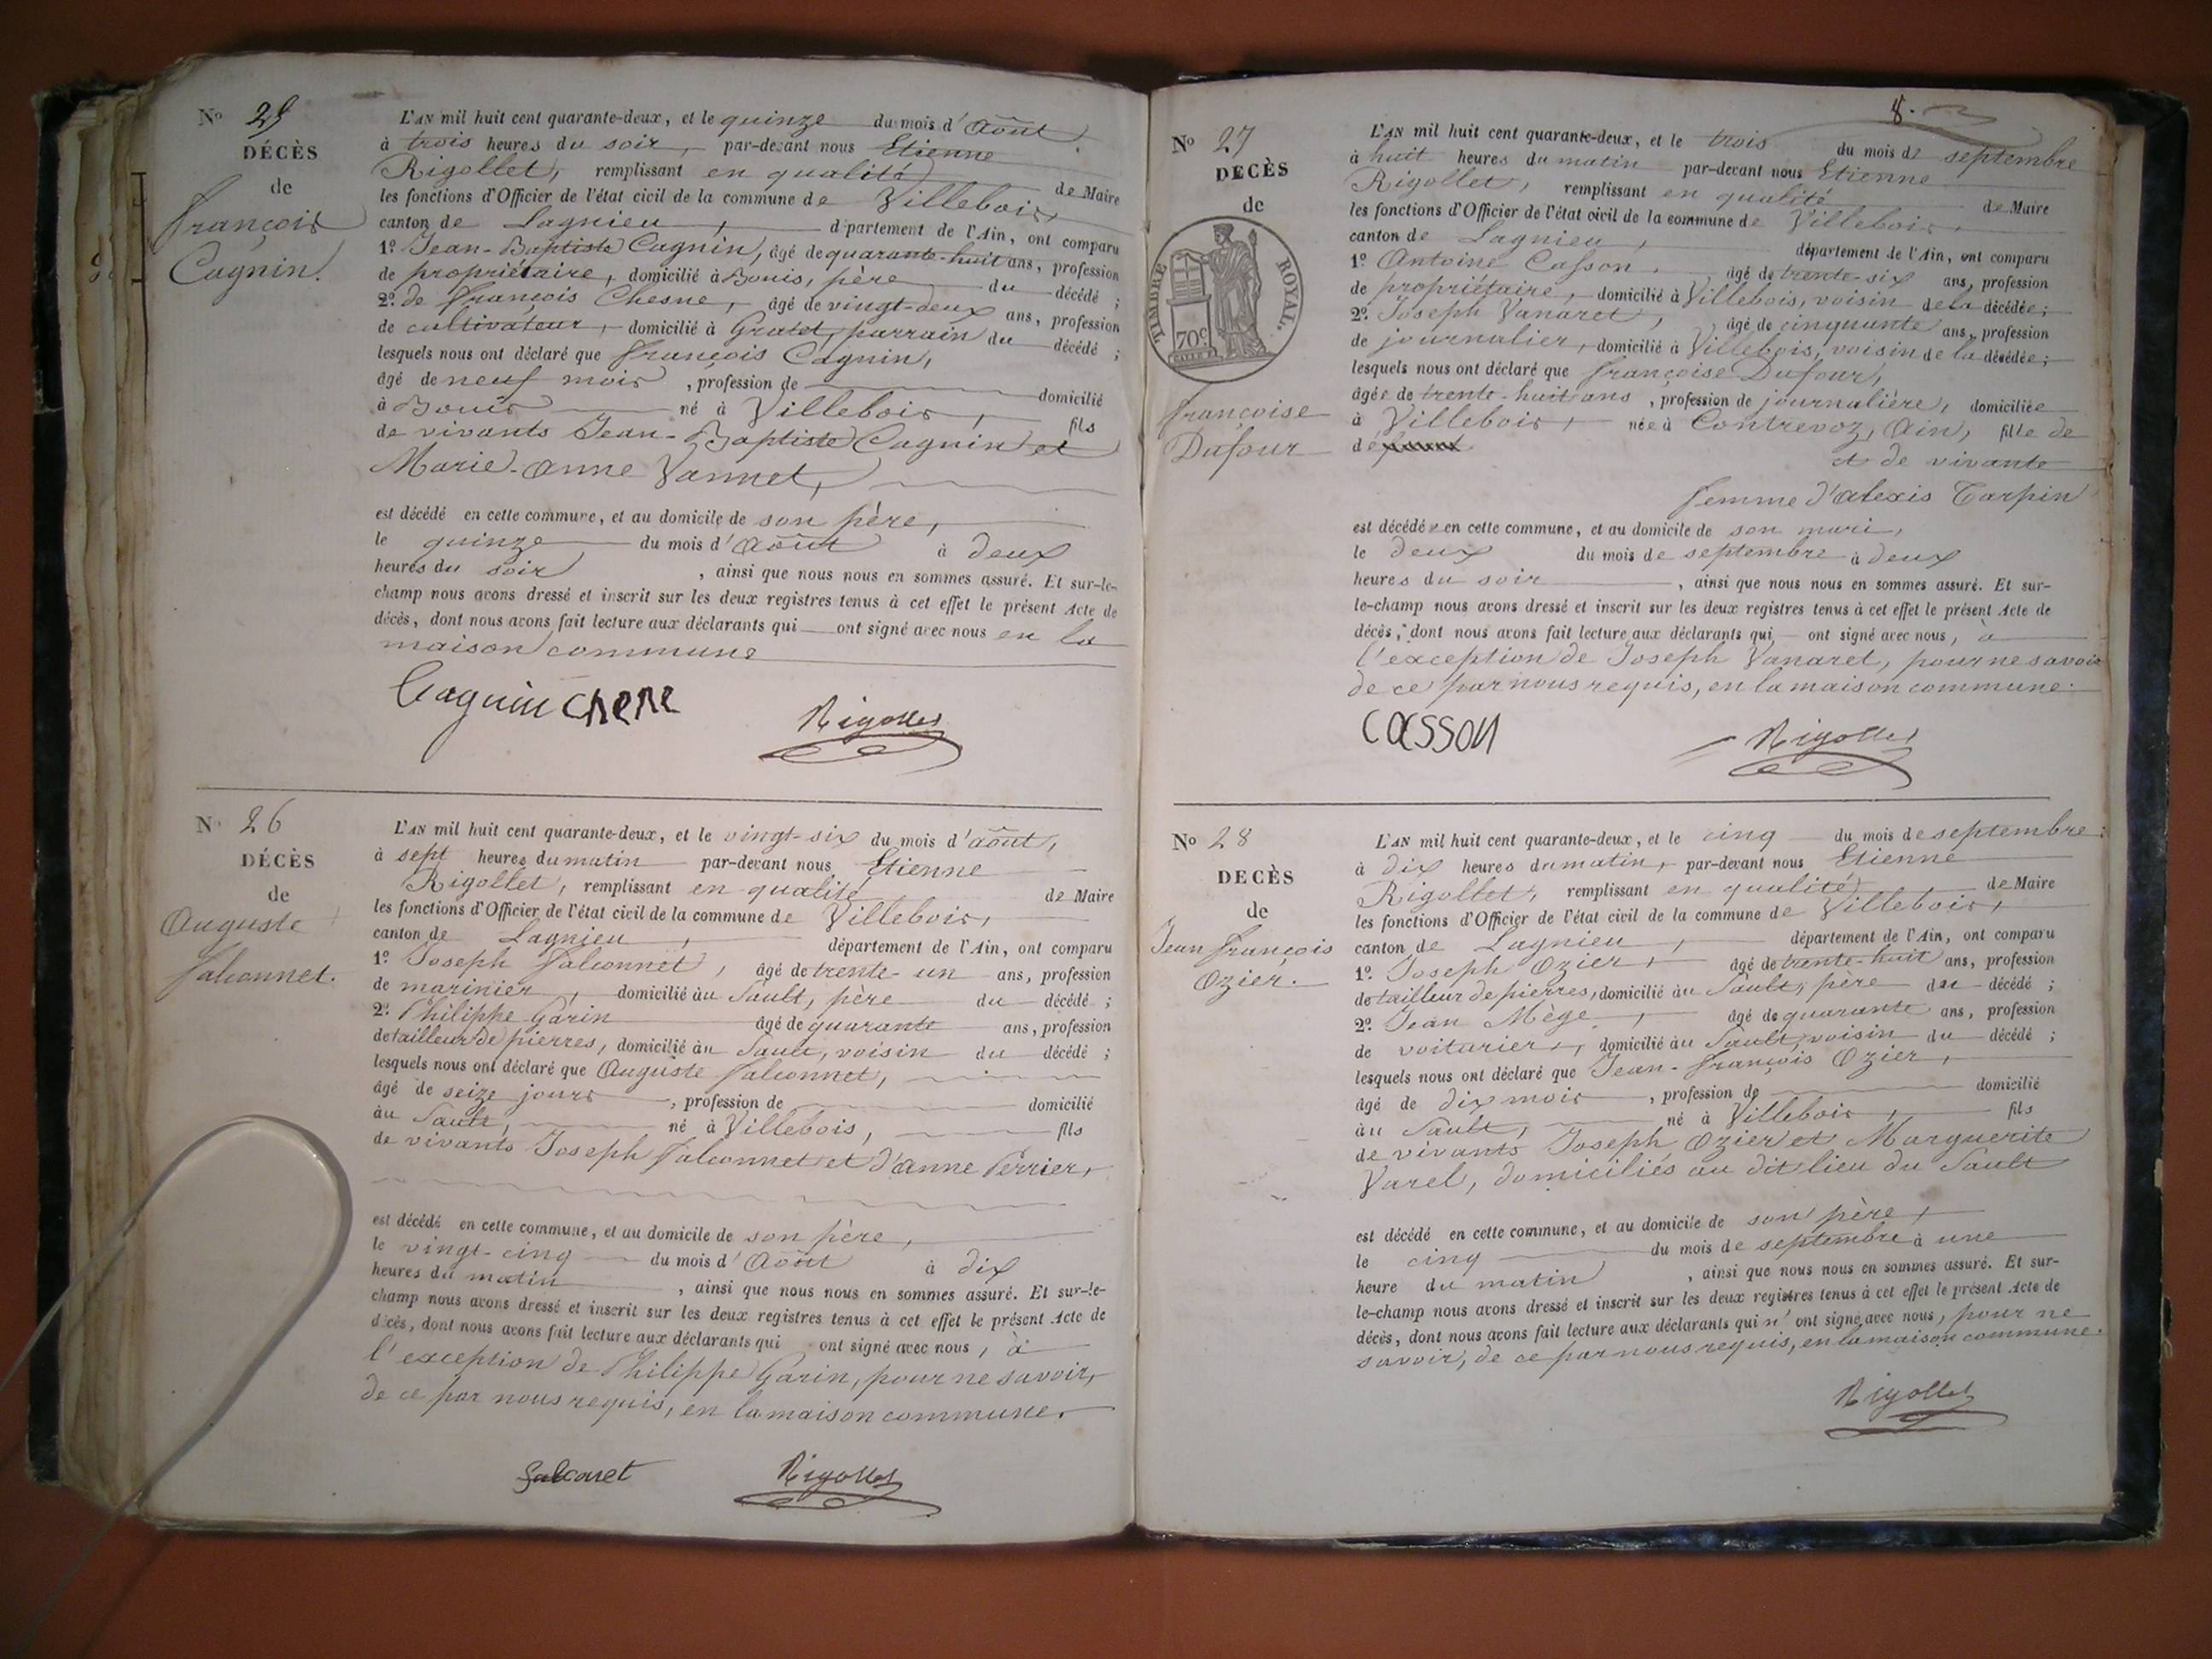 Nº 25
DÉCÈS
de
françois
Cagnin.
L'AN mil huit cent quarante-deux, et le quinze du mois d'Août,
à trois heures du soir, par-devant nous Etienne
Rigollet, remplissant en qualité de Maire
les fonctions d'Officier de l'état civil de la commune de Villebois,
canton de Lagnieu, département de l'Ain, ont comparu
1º. Jean-Baptiste Cagnin, âgé de quarante-huit ans, profession
de propriétaire, domicilié à Bouis, père du décédé ;
2º. de françois Chesne, âgé de vingt-deux ans, profession
de cultivateur, domicilié à Gratet, parrain du décédé ;
lesquels nous ont déclaré que françois Cagnin,
âgé de neuf mois, profession de domicilié
à Bouis né à Villebois, fils
de vivants Jean-Baptiste Cagnin et
Marie-anne Vannet,
est décédé en cette commune, et au domicile de son père,
le quinze du mois d'Août à deux
heures du soir, ainsi que nous nous en sommes assuré. Et sur-le-
champ nous avons dressé et inscrit sur les deux registres tenus à cet effet le présent Acte de
décès, dont nous avons fait lecture aux déclarants qui ont signé avec nous en la
maison commune
Cagnin chene Rigollet
Nº 26
DÉCÈS
de
Auguste
falconnet.
L'AN mil huit cent quarante-deux, et le vingt-six du mois d'août,
à sept heures du matin par-devant nous Etienne
Rigollet, remplissant en qualité de Maire
les fonctions d'Officier de l'état civil de la commune de Villebois,
canton de Lagnieu, département de l'Ain, ont comparu
1º. Joseph falconnet, âgé de trente-un ans, profession
de marinier, domicilié au Sault, père du décédé ;
2º. Philippe Garin âgé de quarante ans, profession
de tailleur de pierres, domicilié au Sault, voisin du décédé ;
lesquels nous ont déclaré que Auguste falconnet,
âgé de seize jours, profession de domicilié
au Sault, né à Villebois, fils
de vivants Joseph falconnet et d'anne Perrier,
est décédé en cette commune, et au domicile de son père,
le vingt-cinq du mois d'Août à dix
heures du matin, ainsi que nous nous en sommes assuré. Et sur-le-
champ nous avons dressé et inscrit sur les deux registres tenus à cet effet le présent Acte de
décès, dont nous avons fait lecture aux déclarants qui ont signé avec nous, à
l'exception de Philippe Garin, pour ne savoir,
de ce par nous requis, en la maison commune.
falconet Rigollet
8.
Nº 27
DECÈS
de
TIMBRE ROYAL.
70c
françoise
Dufour
L'AN mil huit cent quarante-deux, et le trois du mois de septembre
à huit heures du matin par-devant nous Etienne
Rigollet, remplissant en qualité de Maire
les fonctions d'Officier de l'état civil de la commune de Villebois,
canton de Lagnieu, département de l'Ain, ont comparu
1º Antoine Casson, âgé de trente-six ans, profession
de propriétaire, domicilié à Villebois, voisin de la décédée ;
2º. Joseph Vanaret, âgé de cinquante ans, profession
de journalier, domicilié à Villebois, voisin de la décédée ;
lesquels nous ont déclaré que françoise Dufour,
âgée de trente-huit ans, profession de journalière, domiciliée
à Villebois, née à Contrevoz, Ain, fille de
de
et de vivante
femme d'alexis Carpin
est décédée en cette commune, et au domicile de son mari,
le deux du mois de septembre à deux
heures du soir, ainsi que nous nous en sommes assuré. Et sur-
le-champ nous avons dressé et inscrit sur les deux registres tenus à cet effet le présent Acte de
décès, dont nous avons fait lecture aux déclarants qui ont signé avec nous, à
l'exception de Joseph Vanaret, pour ne savoir
de ce par nous requis, en la maison commune.
casson Rigollet
Nº 28
DECÈS
de
Jean françois
Ozier.
L'AN mil huit cent quarante-deux, et le cinq du mois de septembre,
à dix heures du matin, par-devant nous Etienne
Rigollet, remplissant en qualité de Maire
les fonctions d'Officier de l'état civil de la commune de Villebois,
canton de Lagnieu, département de l'Ain, ont comparu
1º. Joseph Ozier, âgé de trente-huit ans, profession
de tailleur de pierres, domicilié au Sault, père du décédé ;
2º. Jean Mège, âgé de quarante ans, profession
de voiturier, domicilié au Sault, voisin du décédé ;
lesquels nous ont déclaré que Jean-françois Ozier,
âgé de dix mois, profession de domicilié
au Sault, né à Villebois, fils
de vivants Joseph Ozier et Marguerite
Varel, domiciliés au dit lieu du Sault
est décédé en cette commune, et au domicile de son père,
le cinq du mois de septembre à une
heure du matin, ainsi que nous nous en sommes assuré. Et sur-
le-champ nous avons dressé et inscrit sur les deux registres tenus à cet effet le présent Acte de
décès, dont nous avons fait lecture aux déclarants qui n'ont signé avec nous, pour ne
savoir, de ce par nous requis, en la maison commune.
Rigollet